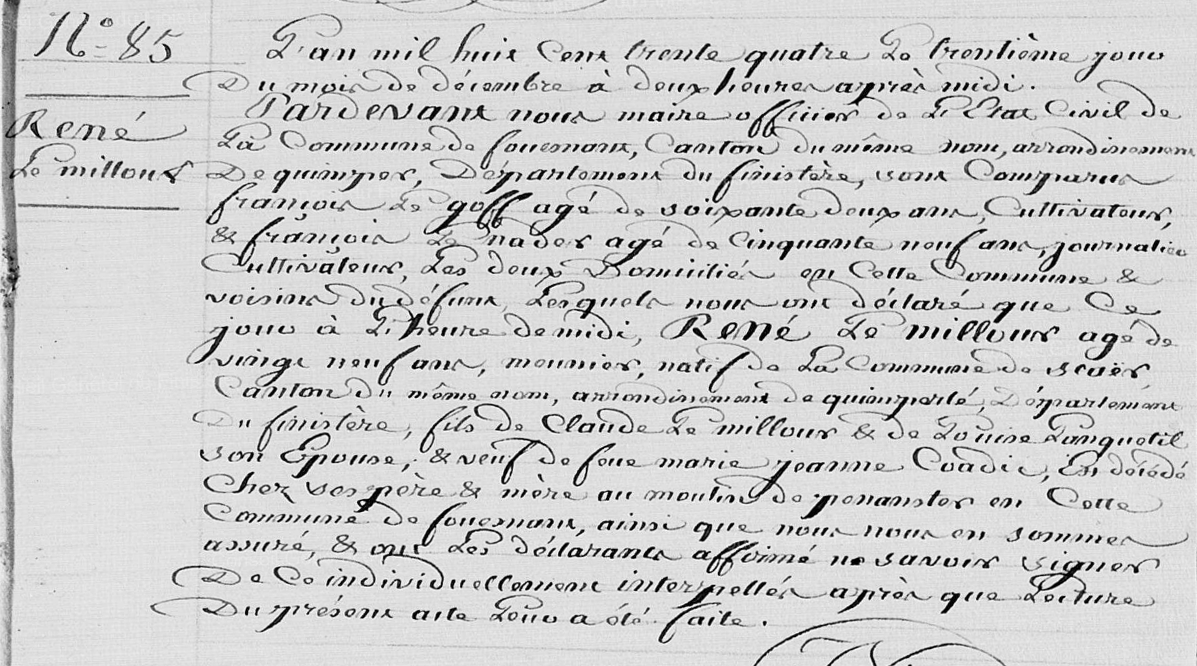 N° 85
L'an mil huit Cent trente quatre Le trentième jour
Du mois de décembre à deux heures après midi.
Pardevant nous maire officier de L'Etat Civil de
La Commune de fouesnant, Canton du même nom, arrondissement
René
Le millour
De quimper, Département du finistère, sont Comparus
françois Le goff agé de soixante deux ans, Cultivateur,
& françois Le nader agé de Cinquante neuf ans, journalier
Cultivateur, Les deux Domiciliés en Cette Commune &
voisins du défunt, Lesquels nous ont déclaré que Ce
jour à L'heure de midi, René Le millour agé de
vingt neuf ans, meunier, natif de La Commune de scaër,
Canton du même nom, arrondissement de quimperlé, Département
Du finistère, fils de Claude Le millour & de Louise Lanquetil
son Epouse, & veuf de feue marie jeanne Coadic, Est décédé
Chez ses père & mère au moulin de penanster en Cette
Commune de fouesnant, ainsi que nous nous en sommes
assuré, & ont Les déclarants affirmé ne savoir signer
De Ce individuellement interpellés après que Lecture
Du présent acte Leur a été faite.